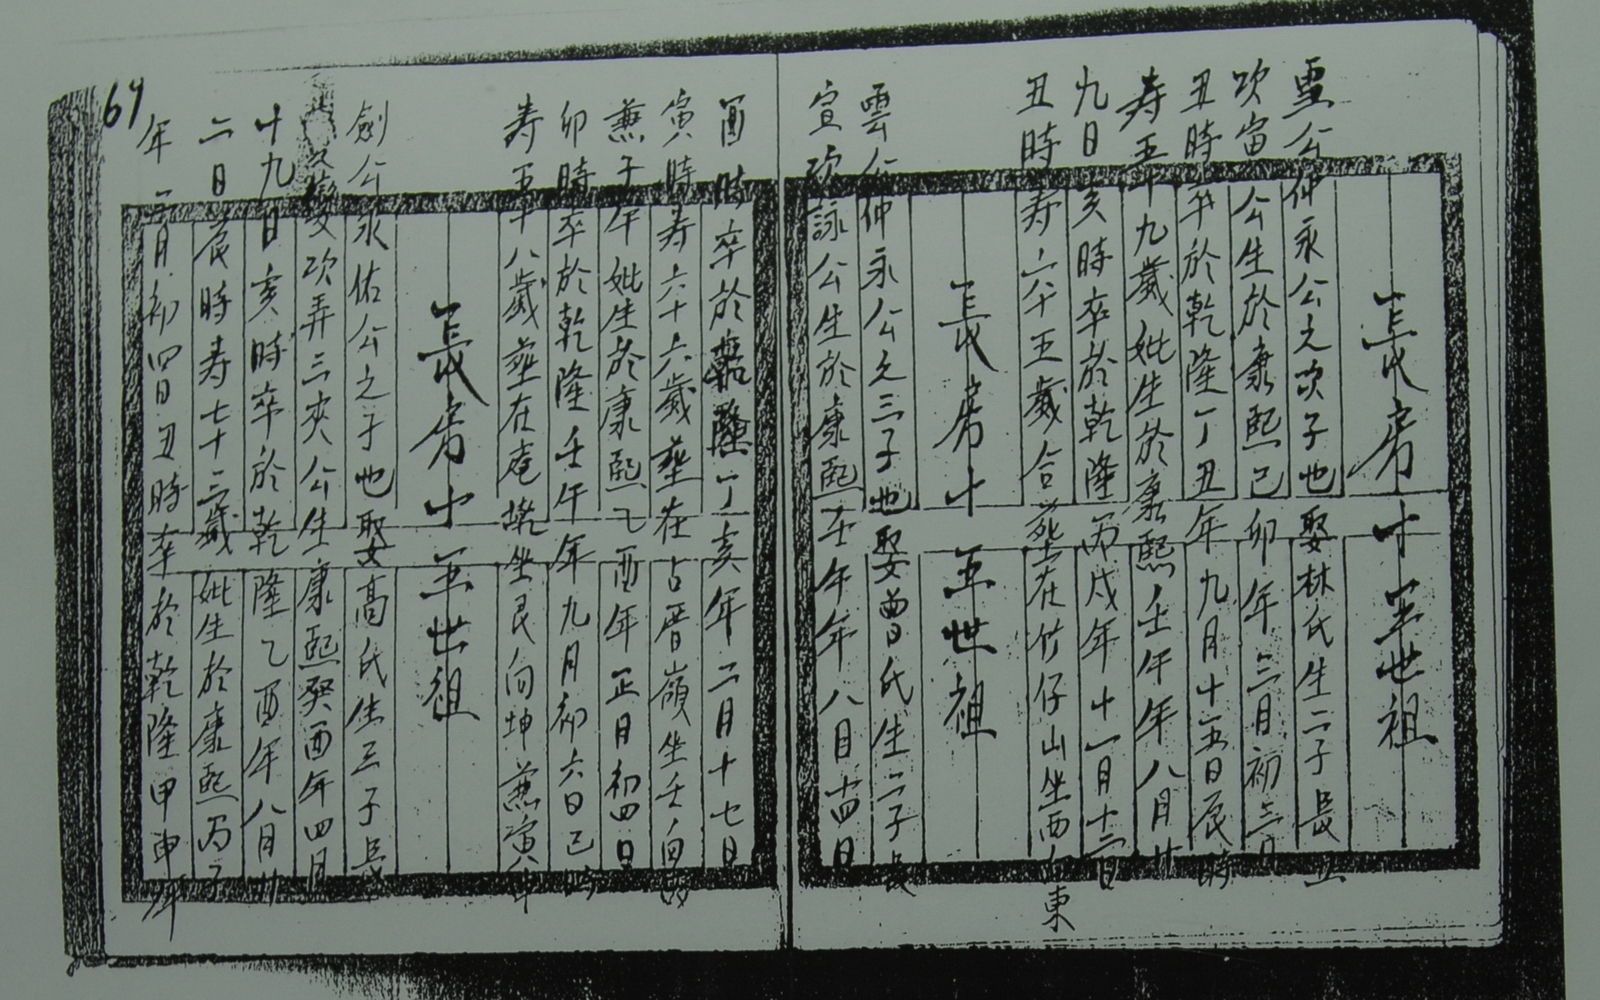 長房十五世祖
公仲永公之次子也娶林氏生二子長
次宙公生於康熙己卯年三月初三日
丑時卒於乾隆丁丑年九月十五日辰時
寿五十九歲妣生於康熙壬午年八月廿
九日亥時卒於乾隆丙戌年十一月十二日
丑時寿六十五歲合葬在竹仔山坐西向東
長房十五世祖
雲公仲永公之三子也娶曾氏生二子長
宣次詠公生於康熙壬午年八月十四日
酉時卒於乾隆丁亥年二月十七日
寅時寿六十六歲葬在古晋嶺坐壬向丙
兼子午妣生於康熙乙酉年正月初四日
卯時卒於乾隆壬午年九月初六日巳時
寿五十八歲葬在庵坐艮向坤兼寅申
長房十五世祖
劍公永佑公之子也娶高氏生三子長
變次弄三夾公生康熙癸酉年四月
十九日亥時卒於乾隆乙酉年八月廿
二日辰時寿七十三歲妣生於康熙丙子
年二月初四日丑時卒於乾隆甲申年